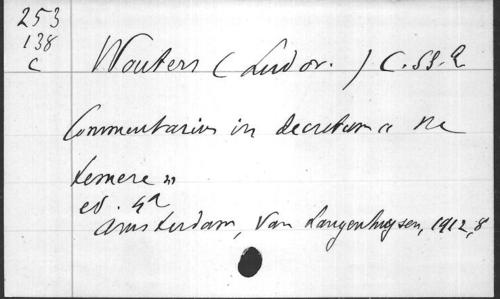 253
138
C
Wouters (Ludov.) C.SS.R
Commentarius in decretum « Ne
temere »
ed. 4a
Amsterdam, Van Langenhuysen, 1912, 8